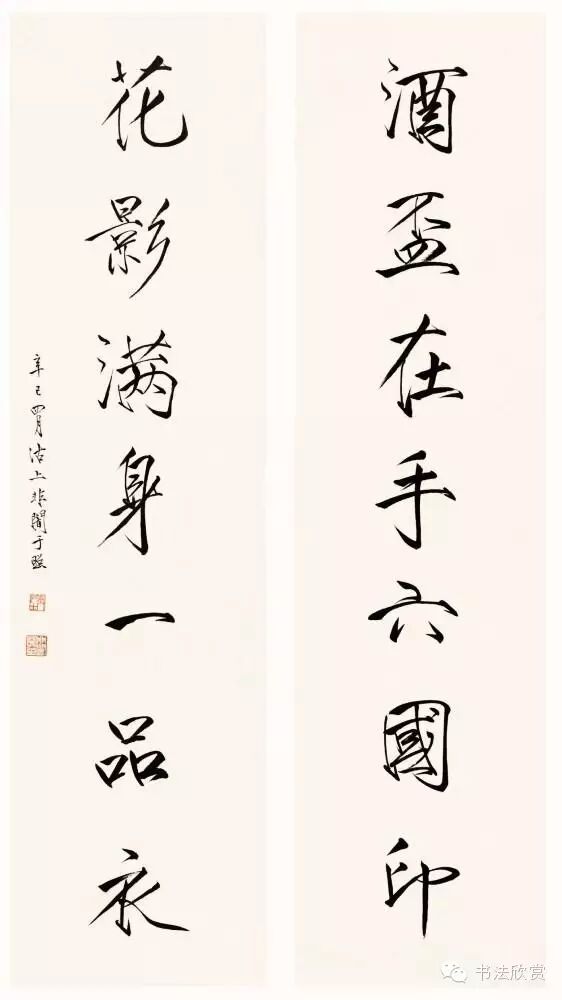 酒盃在手六國印
花影满身一品衣
辛巳四月沽上非闇于照
书法欣赏